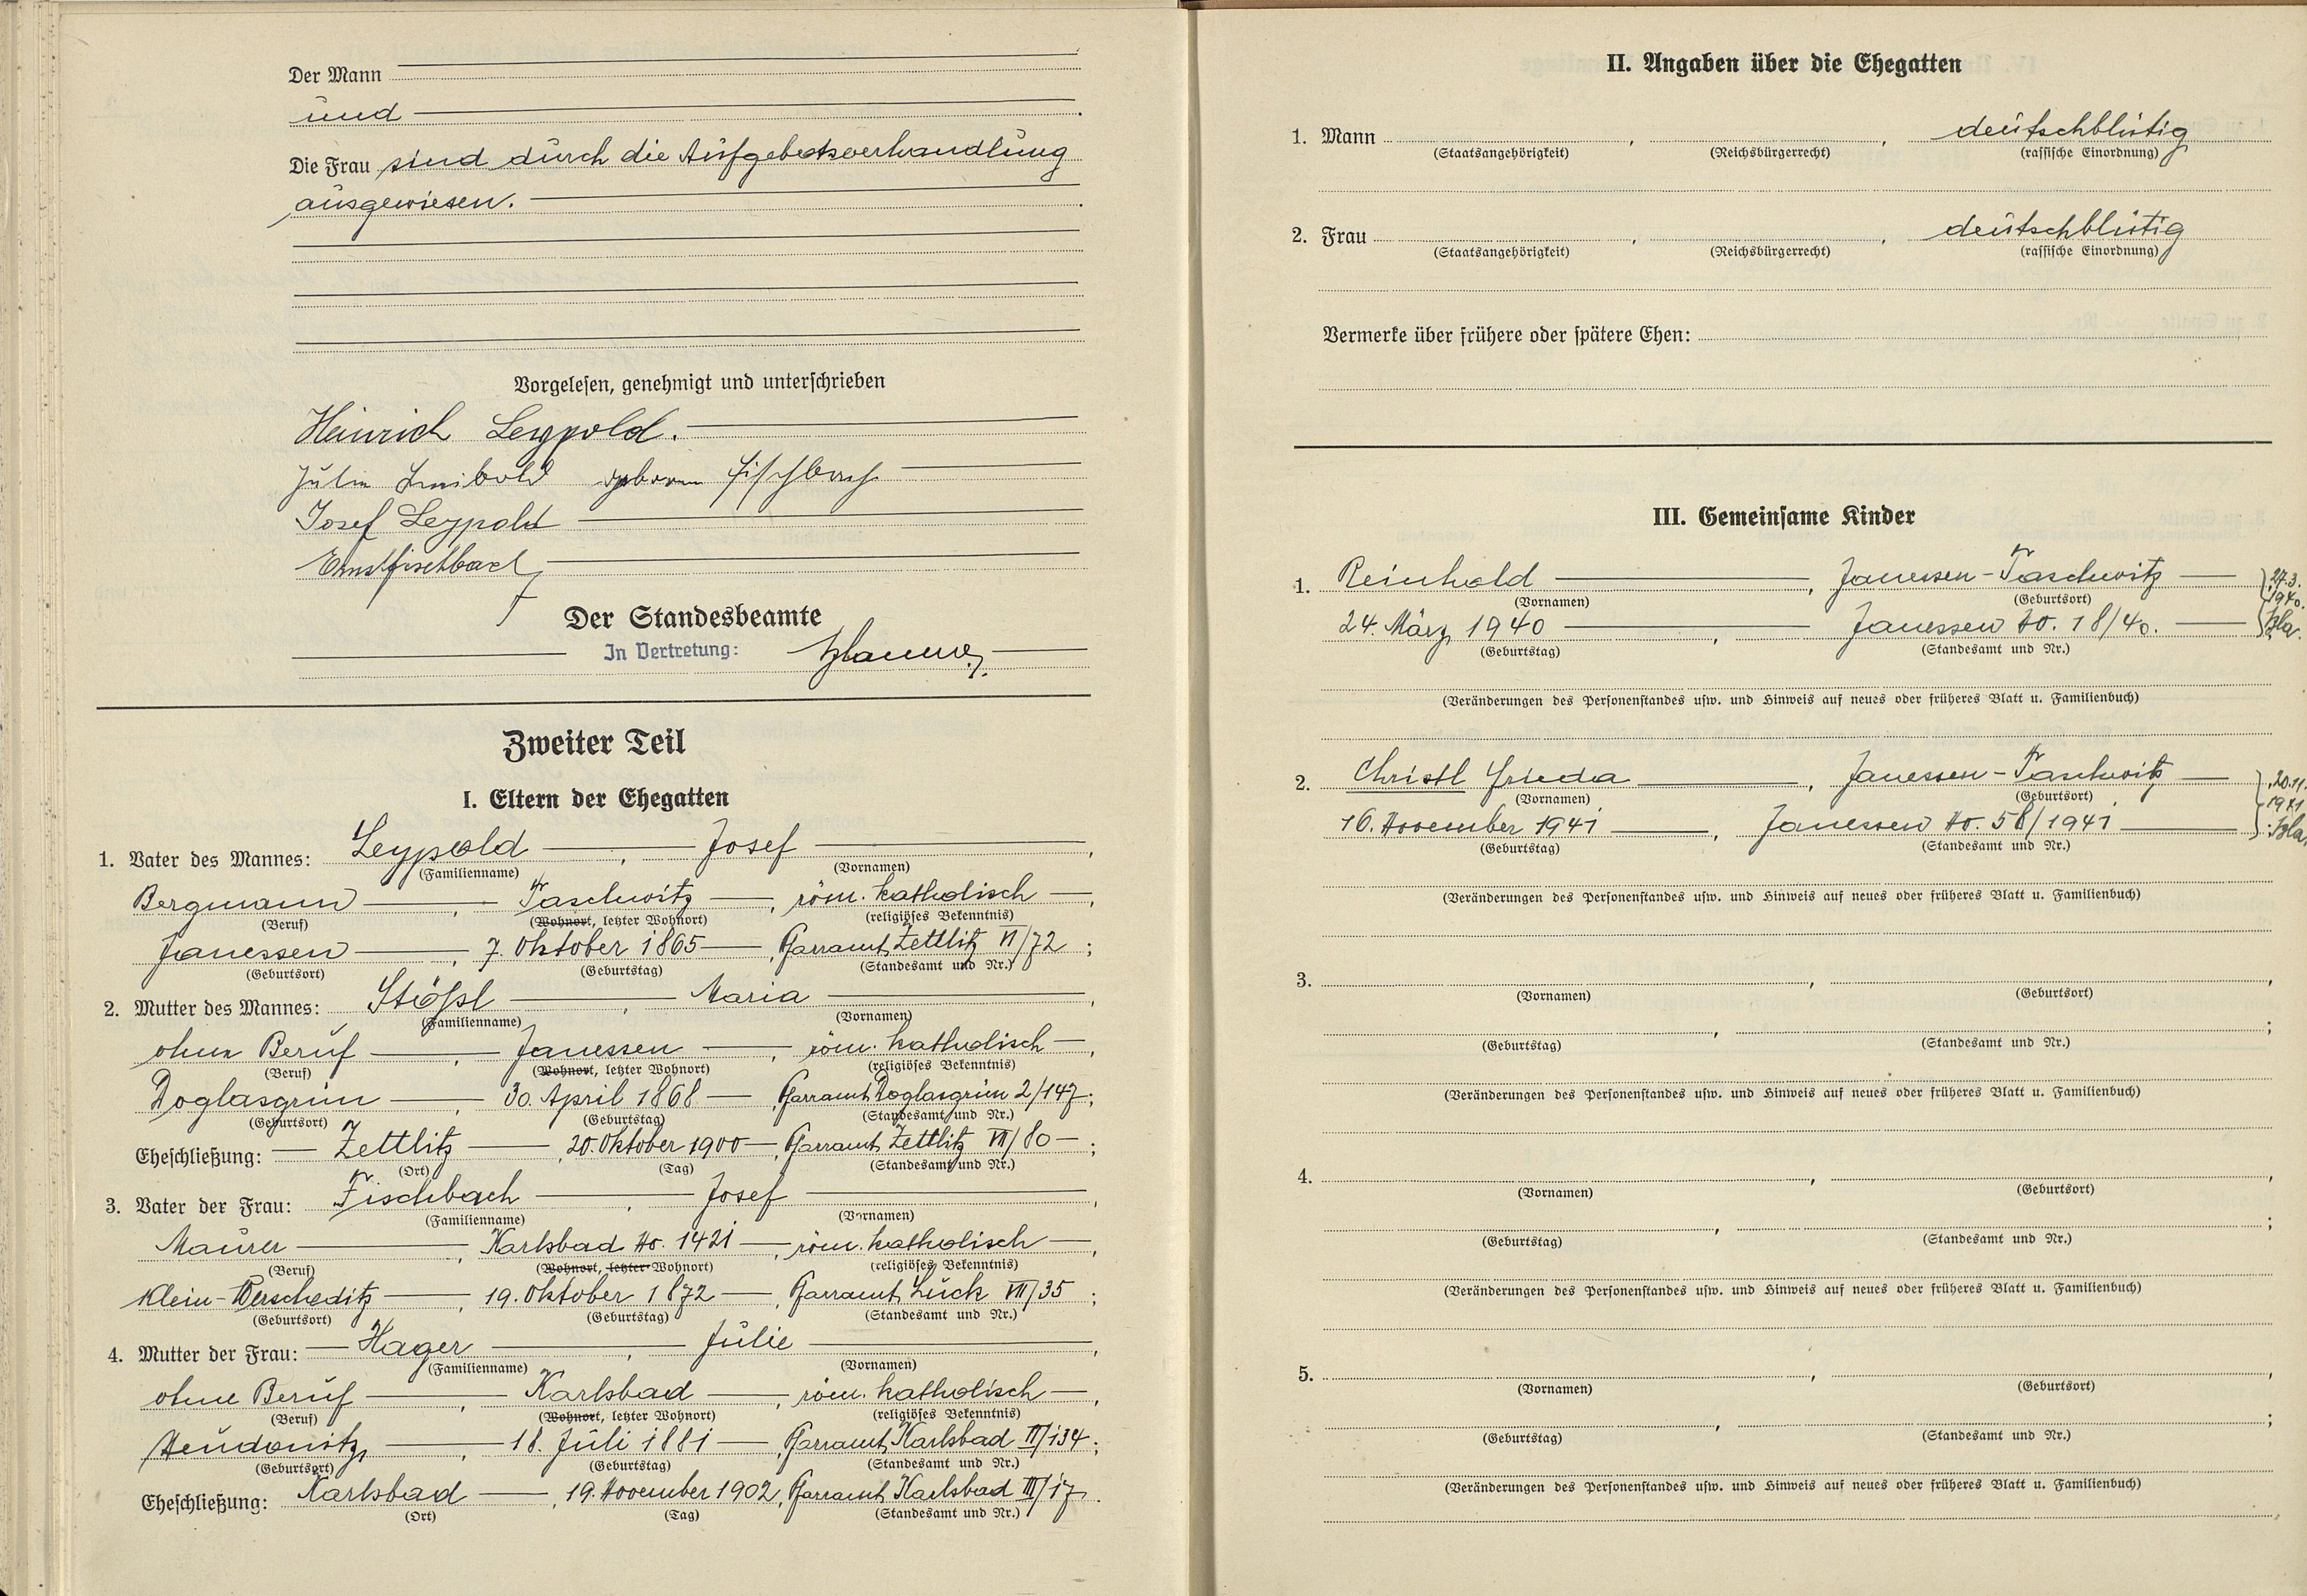 Der Mann
und
Die Frau sind durch die Aufgebotsverhandlung
ausgewiesen.
Vorgelesen, genehmigt und unterschrieben
Heinrich Leypold.
Julie Leibold geborene Fischbach
Josef Leypold
Ernst Fischbach
Der Standesbeamte
In Vertretung:
Zweiter Teil
I. Eltern der Ehegatten
1. Vater des Mannes: Leypold, Josef,
(Familienname) (Vornamen)
Bergmann, Taschwitz, röm. katholisch,
(Beruf) (Wohnort, letzter Wohnort) (religiöses Bekenntnis)
Janessen, 7. Oktober 1865, Pfarramt Zettlitz VI/72;
(Geburtsort) (Geburtstag) (Standesamt und Nr.)
2. Mutter des Mannes: Stößl, Maria,
(Familienname) (Vornamen)
ohne Beruf, Janessen, röm. katholisch,
(Beruf) (Wohnort, letzter Wohnort) (religiöses Bekenntnis)
Doglasgrün, 30. April 1868, Pfarramt Doglasgrün 2/147;
(Geburtsort) (Geburtstag) (Standesamt und Nr.)
Eheschließung: Zettlitz, 20. Oktober 1900, Pfarramt Zettlitz VII/80;
(Ort) (Tag) (Standesamt und Nr.)
3. Vater der Frau: Fischbach, Josef,
(Familienname) (Vornamen)
Maurer, Karlsbad No. 1421, röm. katholisch,
(Beruf) (Wohnort, letzter Wohnort) (religiöses Bekenntnis)
Klein-Werscheditz, 19. Oktober 1872, Pfarramt Luck VII/35;
(Geburtsort) (Geburtstag) (Standesamt und Nr.)
4. Mutter der Frau: Hager, Julie,
(Familienname) (Vornamen)
ohne Beruf, Karlsbad, röm. katholisch,
(Beruf) (Wohnort, letzter Wohnort) (religiöses Bekenntnis)
18. Juli 1881, Pfarramt Karlsbad II/134;
(Geburtsort) (Geburtstag) (Standesamt und Nr.)
Eheschließung: Karlsbad, 19. November 1902, Pfarramt Karlsbad III/17.
(Ort) (Tag) (Standesamt und Nr.)
II. Angaben über die Ehegatten
1. Mann, , deutschblütig
(Staatsangehörigkeit) (Reichsbürgerrecht) (rassische Einordnung)
2. Frau, , deutschblütig
(Staatsangehörigkeit) (Reichsbürgerrecht) (rassische Einordnung)
Vermerke über frühere oder spätere Ehen:
III. Gemeinsame Kinder
1. Reinhold, Janessen-Taschwitz 27.3.
(Vornamen) (Geburtsort) 1940.
24. März 1940, Janessen No. 18/40.
(Geburtstag) (Standesamt und Nr.)
(Veränderungen des Personenstandes usw. und Hinweis auf neues oder früheres Blatt u. Familienbuch)
2. Christl Frieda, Janessen-Taschwitz 20.11.
(Vornamen) (Geburtsort) 1941
16. November 1941, Janessen No. 58/1941
(Geburtstag) (Standesamt und Nr.)
(Veränderungen des Personenstandes usw. und Hinweis auf neues oder früheres Blatt u. Familienbuch)
3. , ,
(Vornamen) (Geburtsort)
, ;
(Geburtstag) (Standesamt und Nr.)
(Veränderungen des Personenstandes usw. und Hinweis auf neues oder früheres Blatt u. Familienbuch)
4. , ,
(Vornamen) (Geburtsort)
, ;
(Geburtstag) (Standesamt und Nr.)
(Veränderungen des Personenstandes usw. und Hinweis auf neues oder früheres Blatt u. Familienbuch)
5. , ,
(Vornamen) (Geburtsort)
, ;
(Geburtstag) (Standesamt und Nr.)
(Veränderungen des Personenstandes usw. und Hinweis auf neues oder früheres Blatt u. Familienbuch)